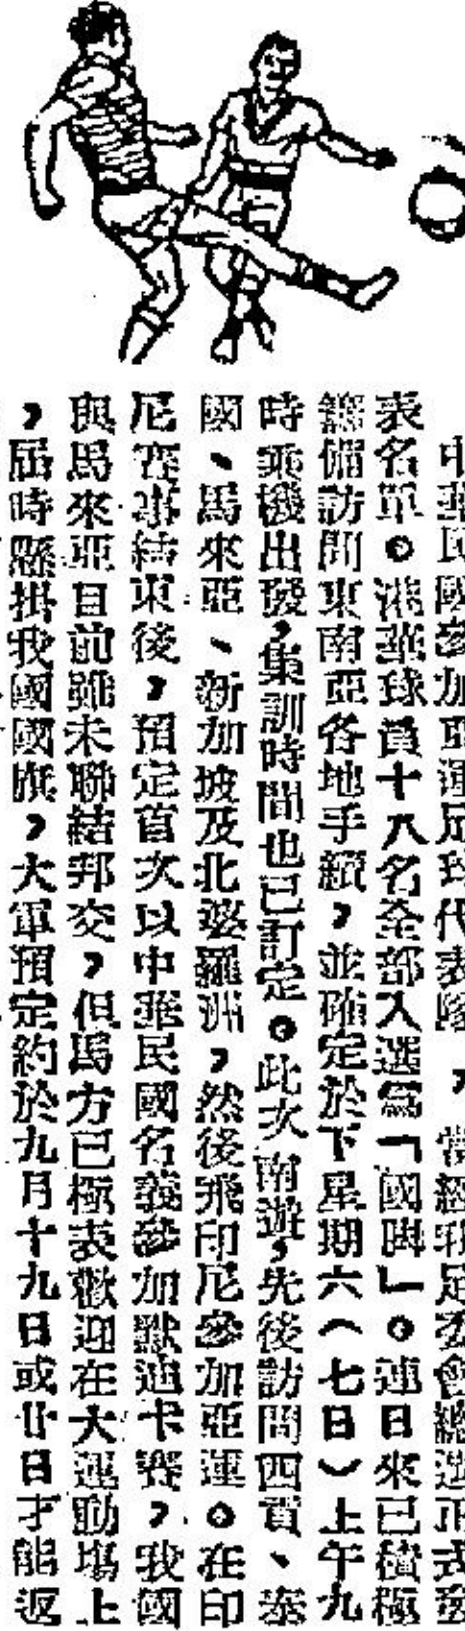 中華民國參加亞運足球代表隊，當經我足委會總選正式發
表名單。港華球員十八名全部入選為「國脚」。連日來已積極
籌備訪問東南亞各地手續，並確定於下星期六（七日）上午九
時乘機出發，集訓時間也已訂定。此次南遊，先後訪問四貢、泰
國、馬來亞、新加坡及北婆羅洲，然後飛印尼參加亞運。在印
尼賽事結束後，預定首次以中華民國名義參加默迪卡賽，我國
與馬來亞目前雖未聯結邦交，但馬方已極表歡迎在大運動場上
，屆時懸掛我國國旗，大軍預定約於九月十九日或廿日才能返